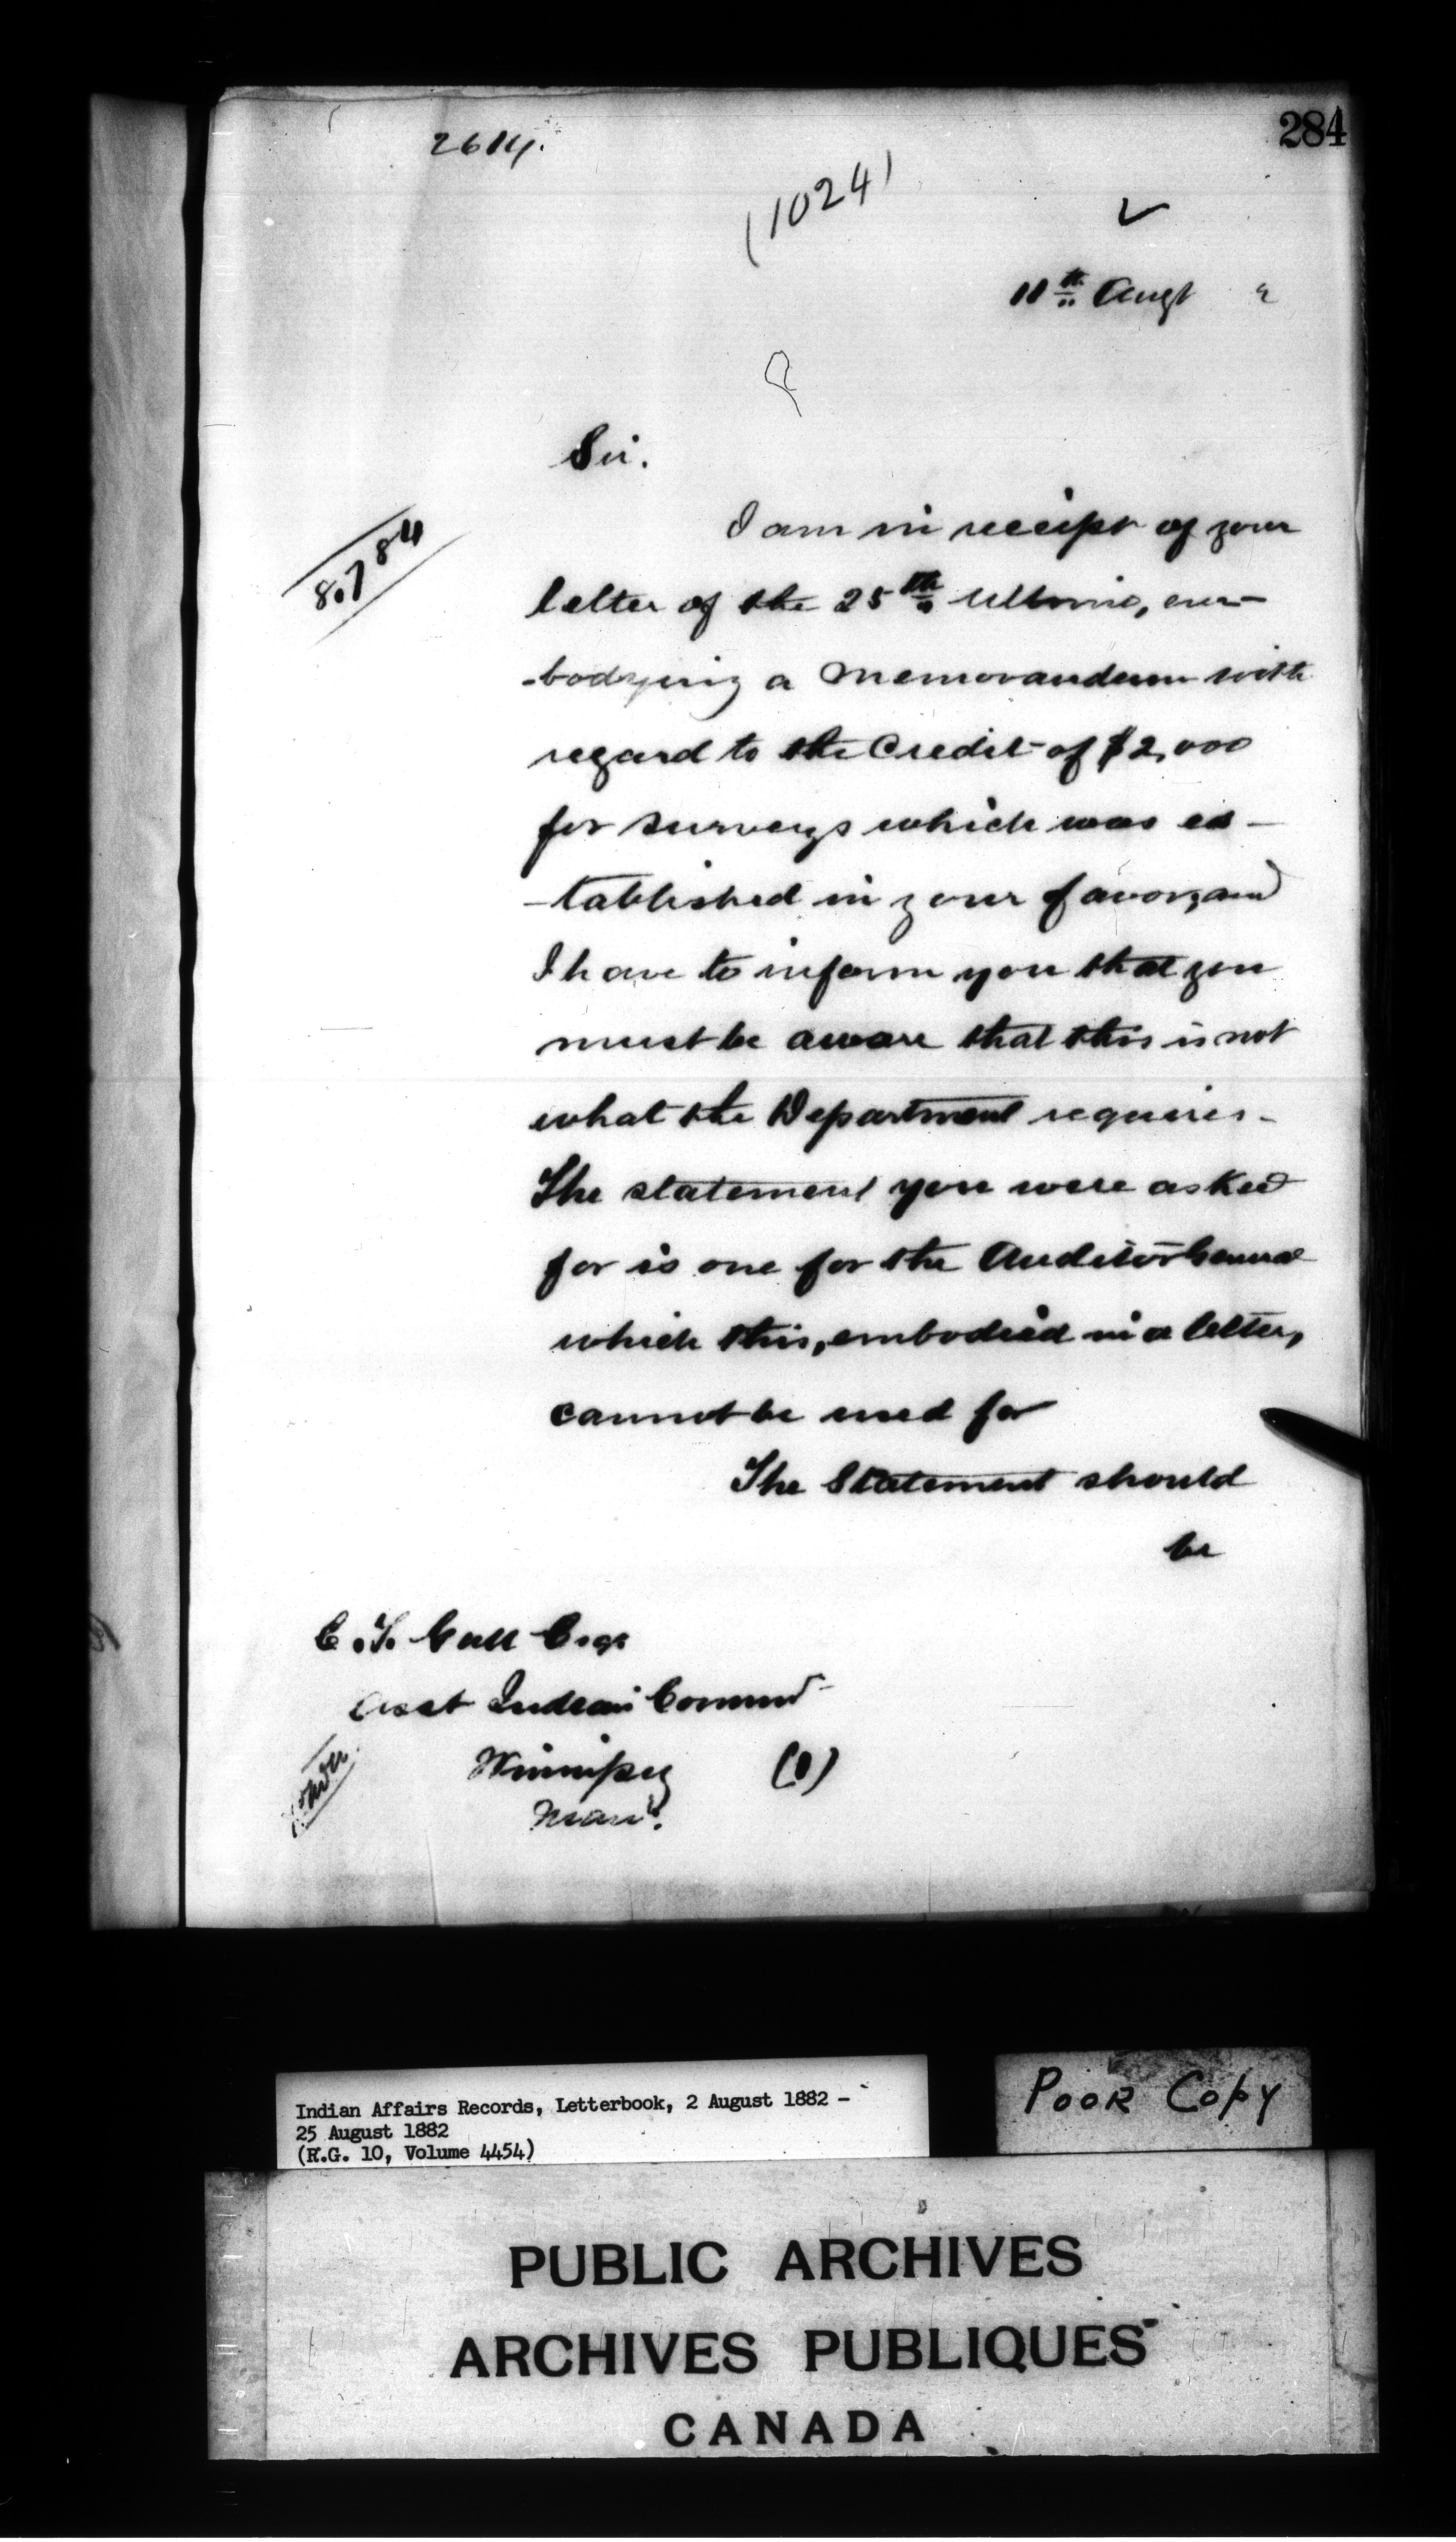 284
2614.
(1024)
11th Augt 2
Sir.
8.784
I am in receipt of your
letter of the 25th Ultimo, em-
-bodying a Memorandum with
regard to the Credit of $2,000
for surveys which was es-
-tablished in your favor, and
I have to inform you that you
must be aware that this is not
what the Department requires-
The statement you were asked
for is one for the Auditor General
which this, embodied in a letter,
cannot be used for
The Statement should
be
E.T. Galt Esqr
Asst Indian Commr
Winnipeg (1)
Man.
Indian Affairs Records, Letterbook, 2 August 1882 -
25 August 1882
(R.G. 10, Volume 4454)
POOR COPY
PUBLIC ARCHIVES
ARCHIVES PUBLIQUES
CANADA